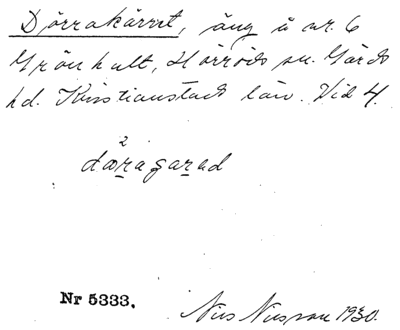 Dörrakärret, äng å nr. 6
Grönhult, Hörröds sn. Gärds
hd. Kristianstads län. Vid 4.
2
dœragarad
Nr 5333.
Nils Nilsson 1930.